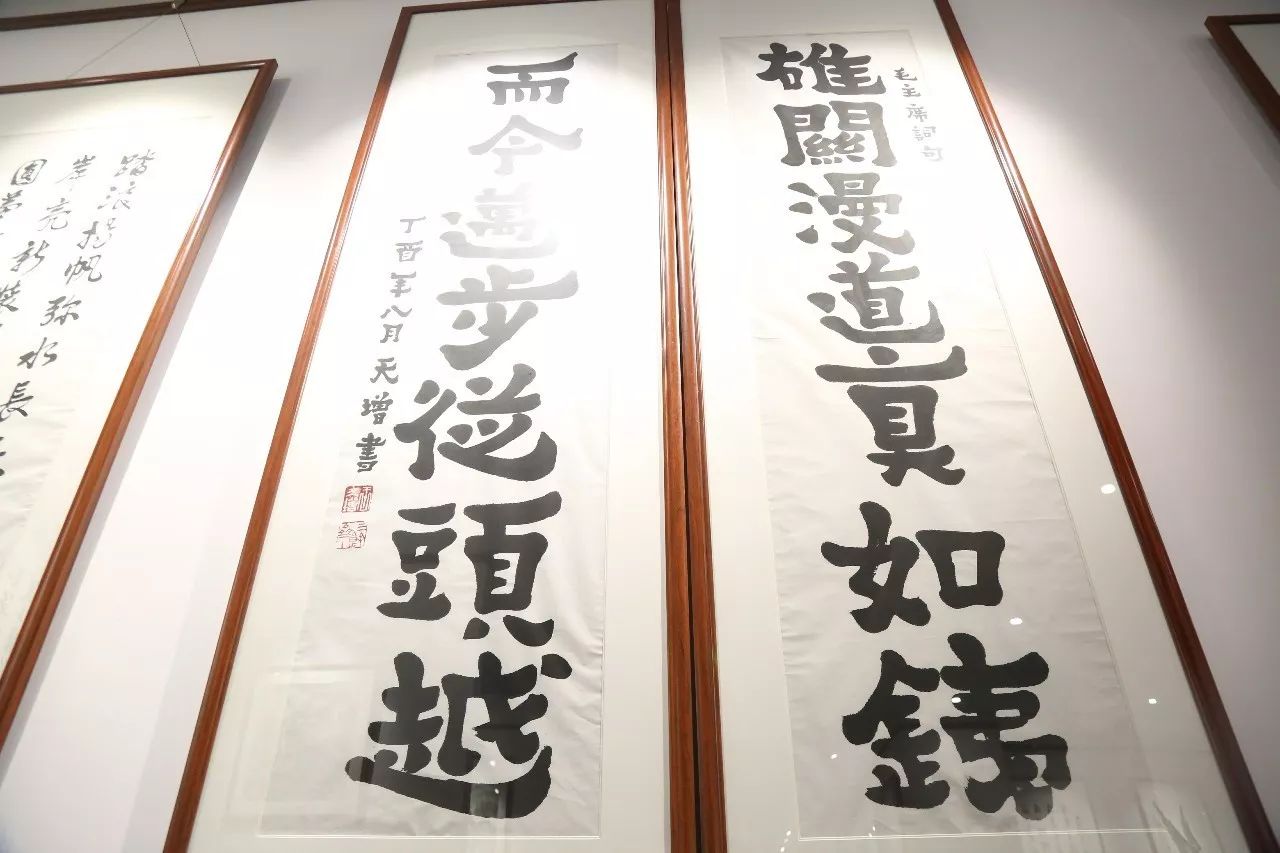 雄關漫道真如鐵
毛主席詞句
而今邁步從頭越
丁酉年八月天增書
踏浪揚帆
岸亮新裝
弥水長
圆